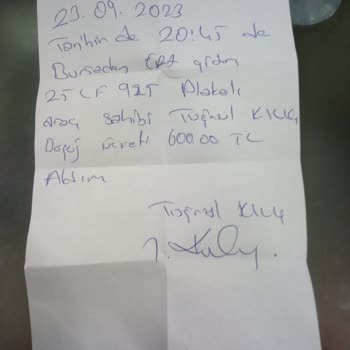 23.09.2023
Tarihinde 20:45 de
Bursadan giden
25 CF 925 Plakalı
araç sahibi Tuğrul KILIÇ
ücreti 600.00 TL
Aldım
Tuğrul KILIÇ